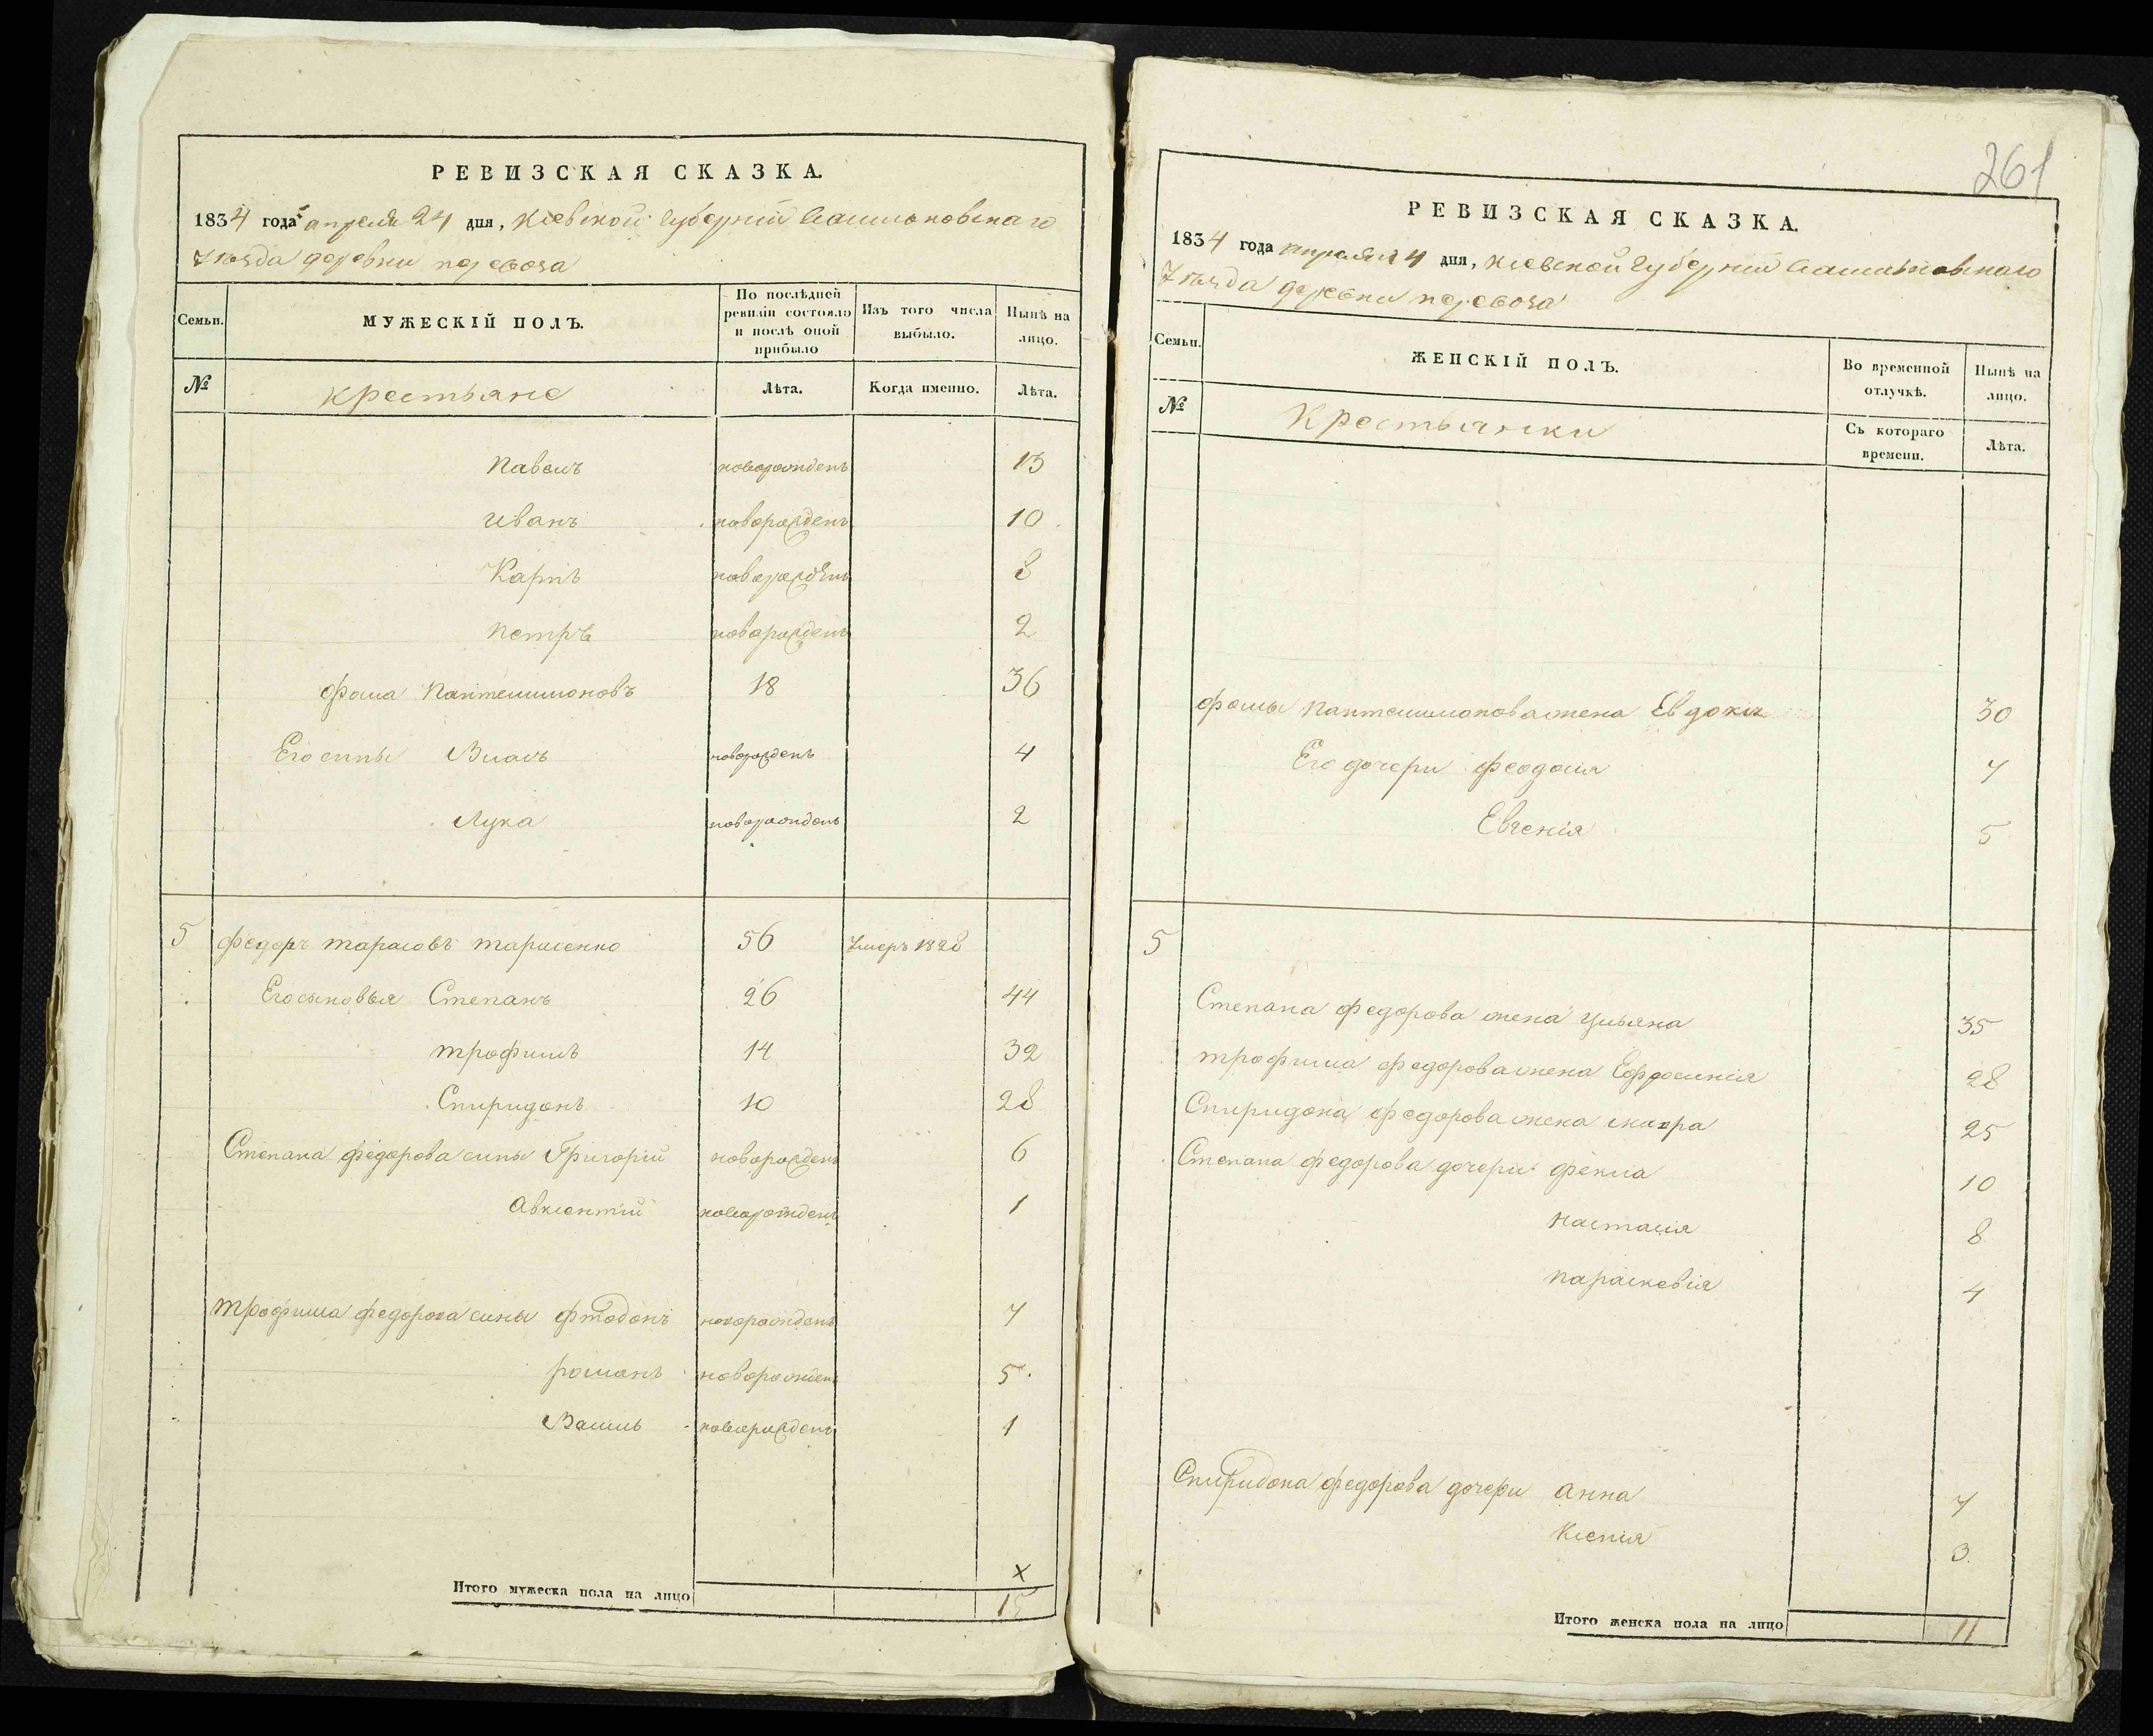 РЕВИЗСКАЯ СКАЗКА.
1834 года апреля 24 дня, Кіевской губерніи
уезда деревни перевоза
Семьи. МУЖЕСКІЙ ПОЛЪ. По послѣдней ревизіи состояло и послѣ оной прибыло Изъ того числа выбыло. Нынѣ на лицо.
№ крестьяне Лѣта. Когда именно. Лѣта.
Павелъ новорожденъ 13
иванъ новорожденъ 10
Карпъ новорожденъ 8
петръ новорожденъ 2
фома пантелимоновъ 18 36
Его сины Власъ новорожденъ 4
Лука новорожденъ 2
5 федоръ тарасовъ тарасенко 56 Умеръ 1828
Его сыновья Степанъ 26 44
трофимъ 14 32
Спиридонъ 10 28
Степана федорова сины Григорій новорожденъ 6
авксентій новорожденъ 1
трофима федорова сины новорожденъ 7
романъ новорожденъ 5
Василь новорожденъ 1
Х
Итого мужеска пола на лицо 15
261
РЕВИЗСКАЯ СКАЗКА.
1834 года апреля 24 дня, Кіевской губерніи
уезда деревни перевоза
Семьи. ЖЕНСКІЙ ПОЛЪ. Во временной отлучкѣ. Нынѣ на лицо.
№ Крестьянки Съ котораго времени. Лѣта.
фомы пантелимонова жена Евдокия 30
Его дочери феодосія 7
Евгенія 5
5
Степана федорова жена Ульяна 35
трофима федорова жена Ефросинія 28
Спиридона федорова жена 25
Степана федорова дочери фекла 10
настасія 8
параскевія 4
Спиридона федорова дочери анна 7
Ксенія 3
Итого женска пола на лицо 11